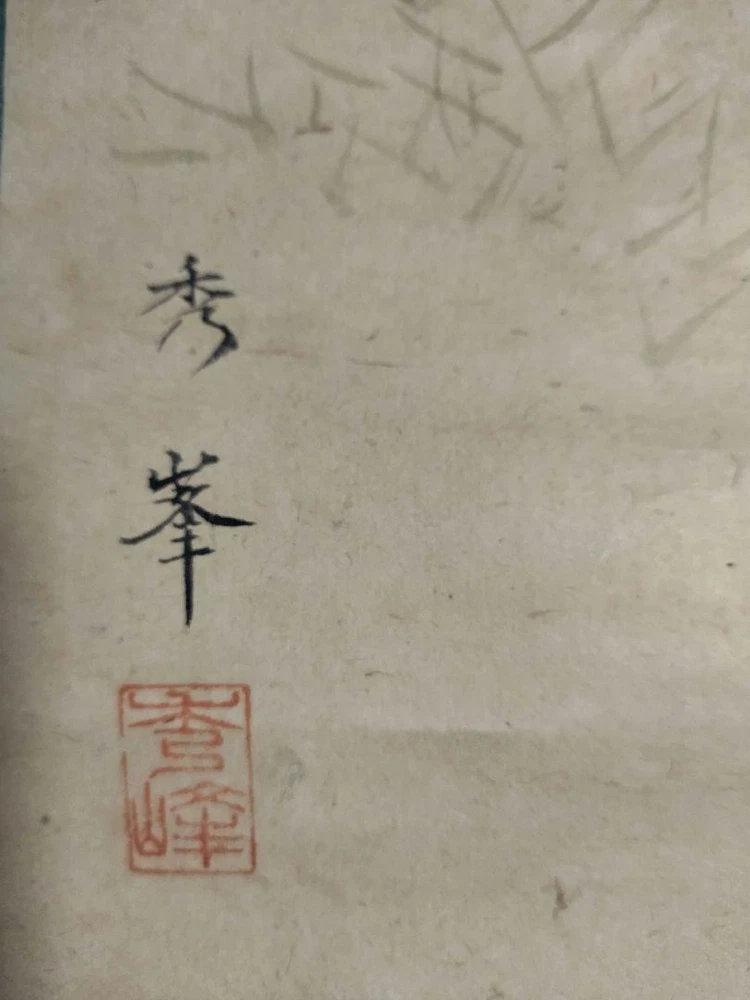 秀峯
秀峰